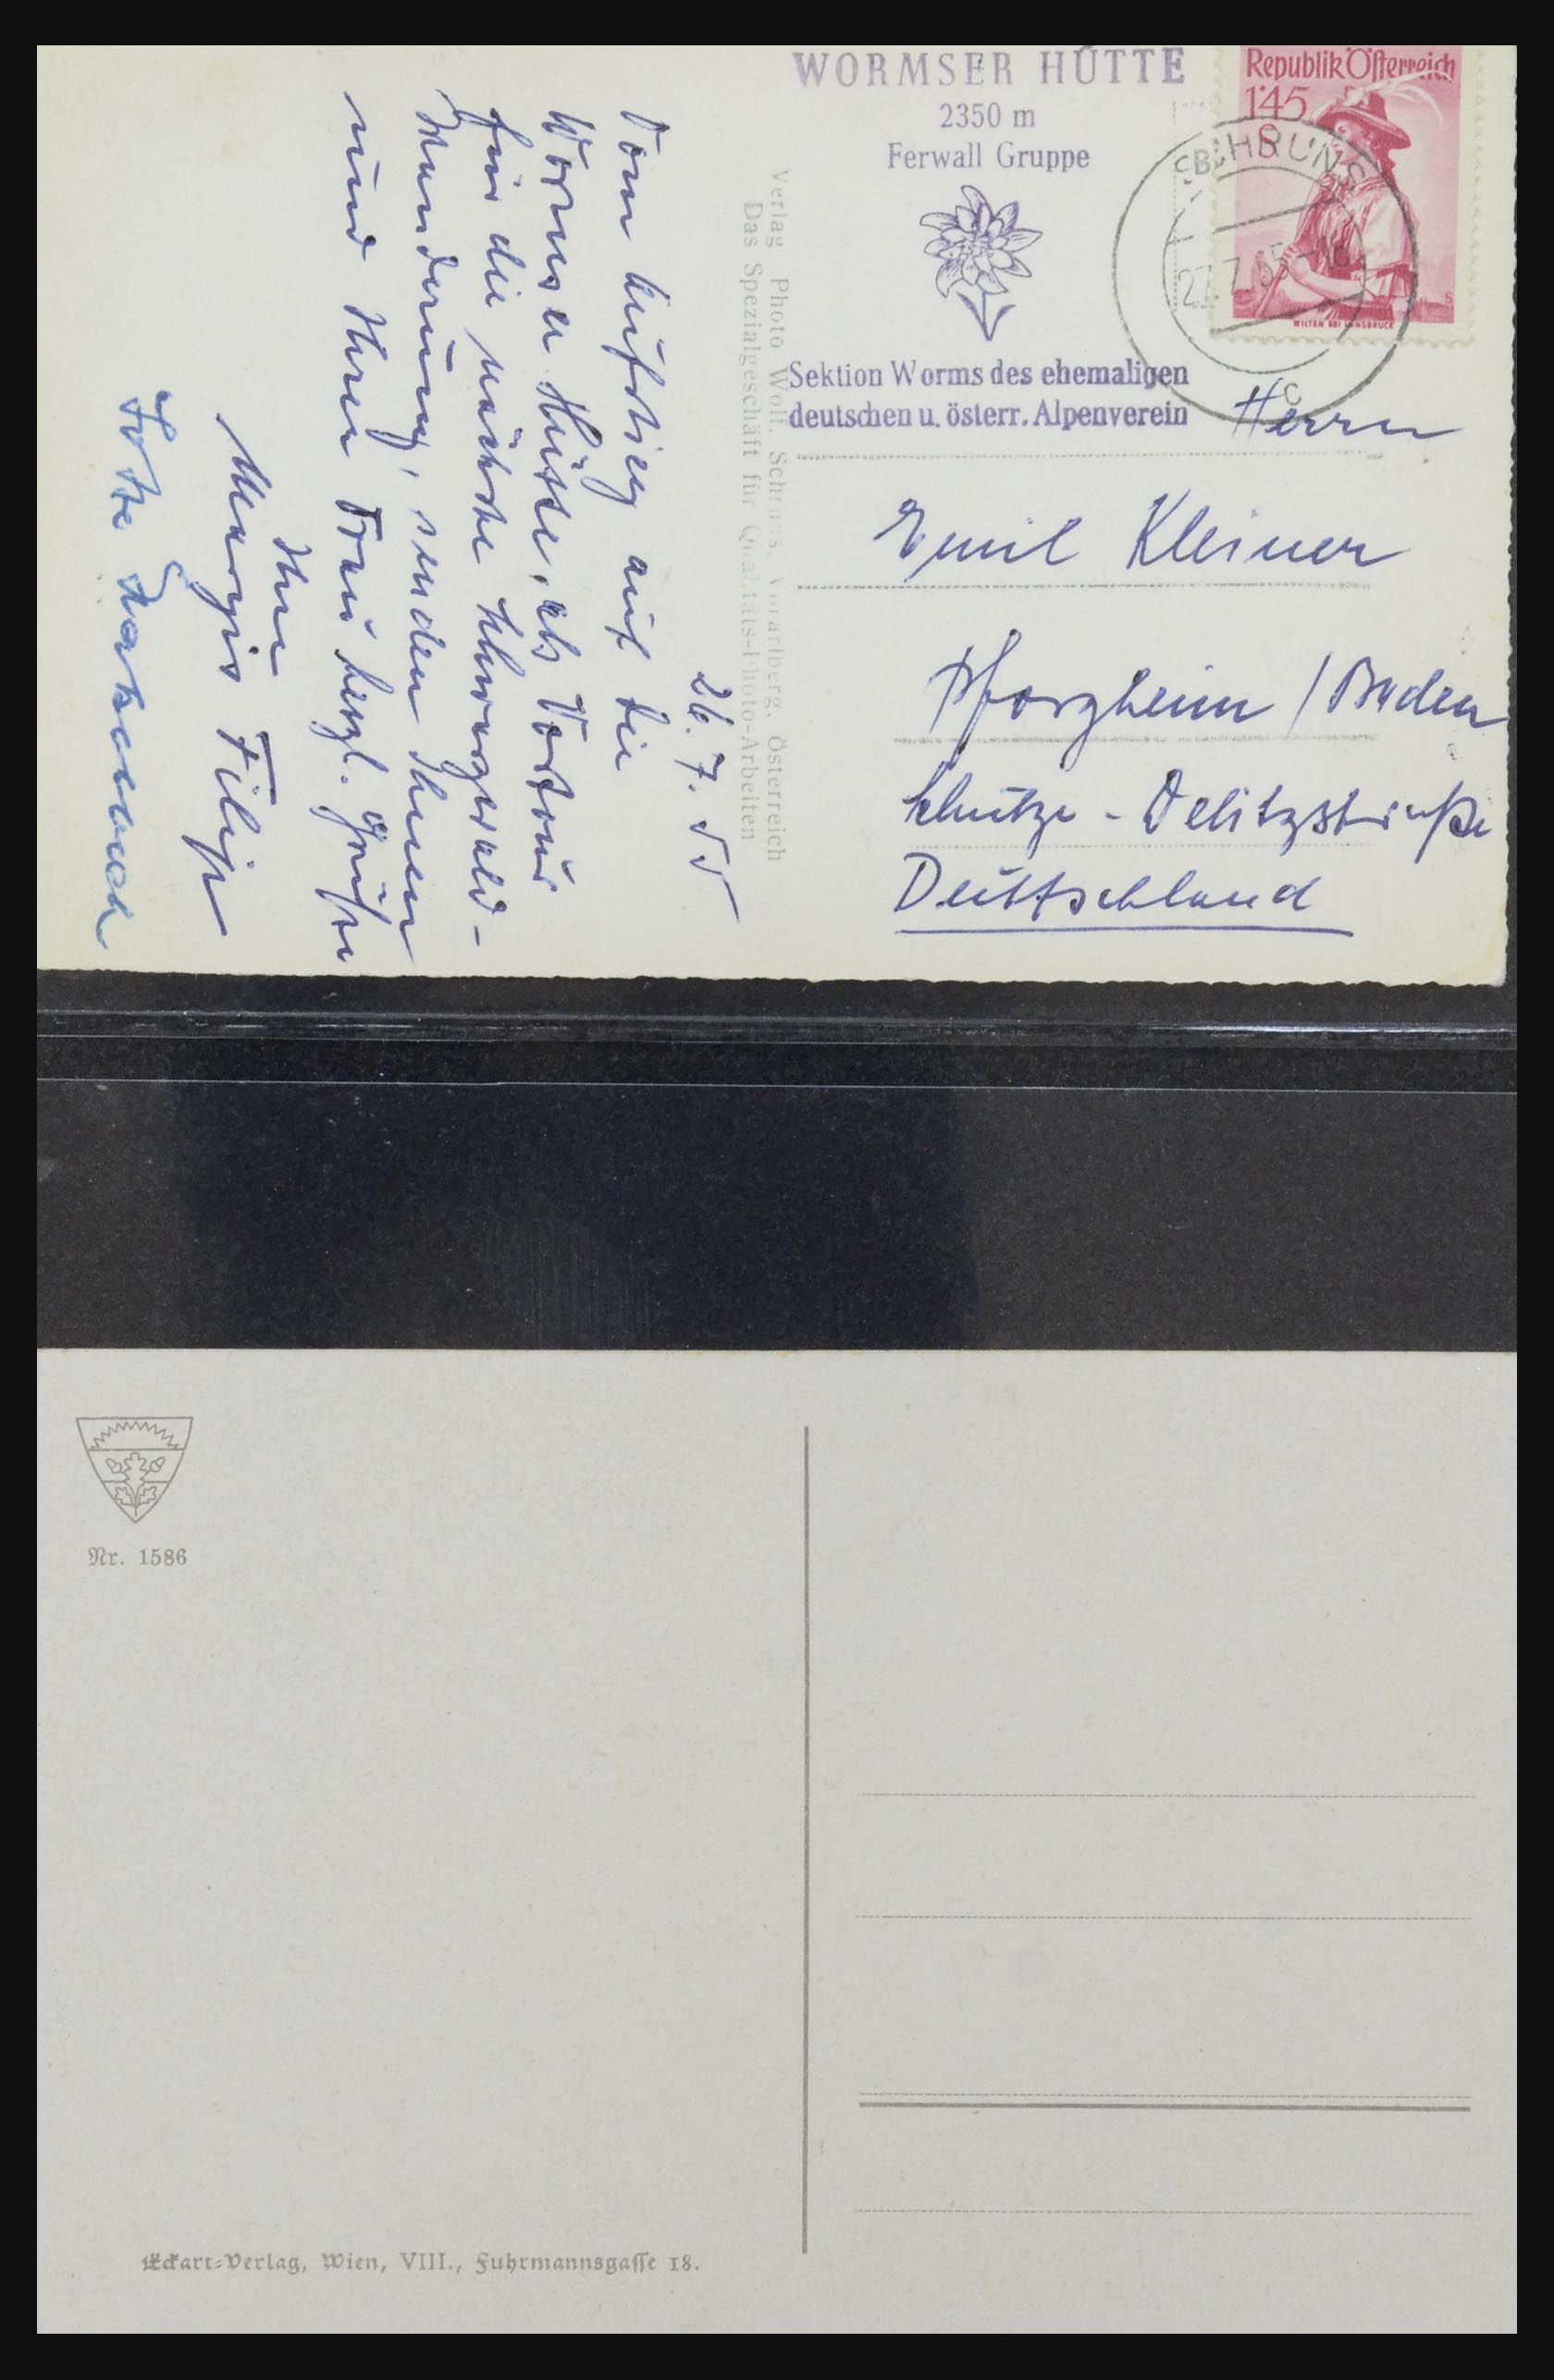 WORMSER HÜTTE
2350 m
Ferwall Gruppe
Sektion Worms des ehemaligen
deutschen u. österr. Alpenverein
Republik Österreich
1'45
S
WILTEN BEI INNSBRUCK
SCHRUNS
27.7.55-18
c
Herrn
Emil Kleiner
Pforzheim / Baden
Schulze - Delitzstraße
Deuttschland
Verlag Photo Wolf, Schruns, Vorarlberg, Österreich
Das Spezialgeschäft für Qualitäts-Photo-Arbeiten
26. 7. 55
Vom Aufstieg auf die
Wormser Hütte, als Vortour
für die nächste Schwarzwald-
wanderung, senden Ihnen
und Ihrer Frau herzl. Grüße
Ihre
Margis Filip
Nr. 1586
Eckart-Verlag, Wien, VIII., Fuhrmannsgasse 18.